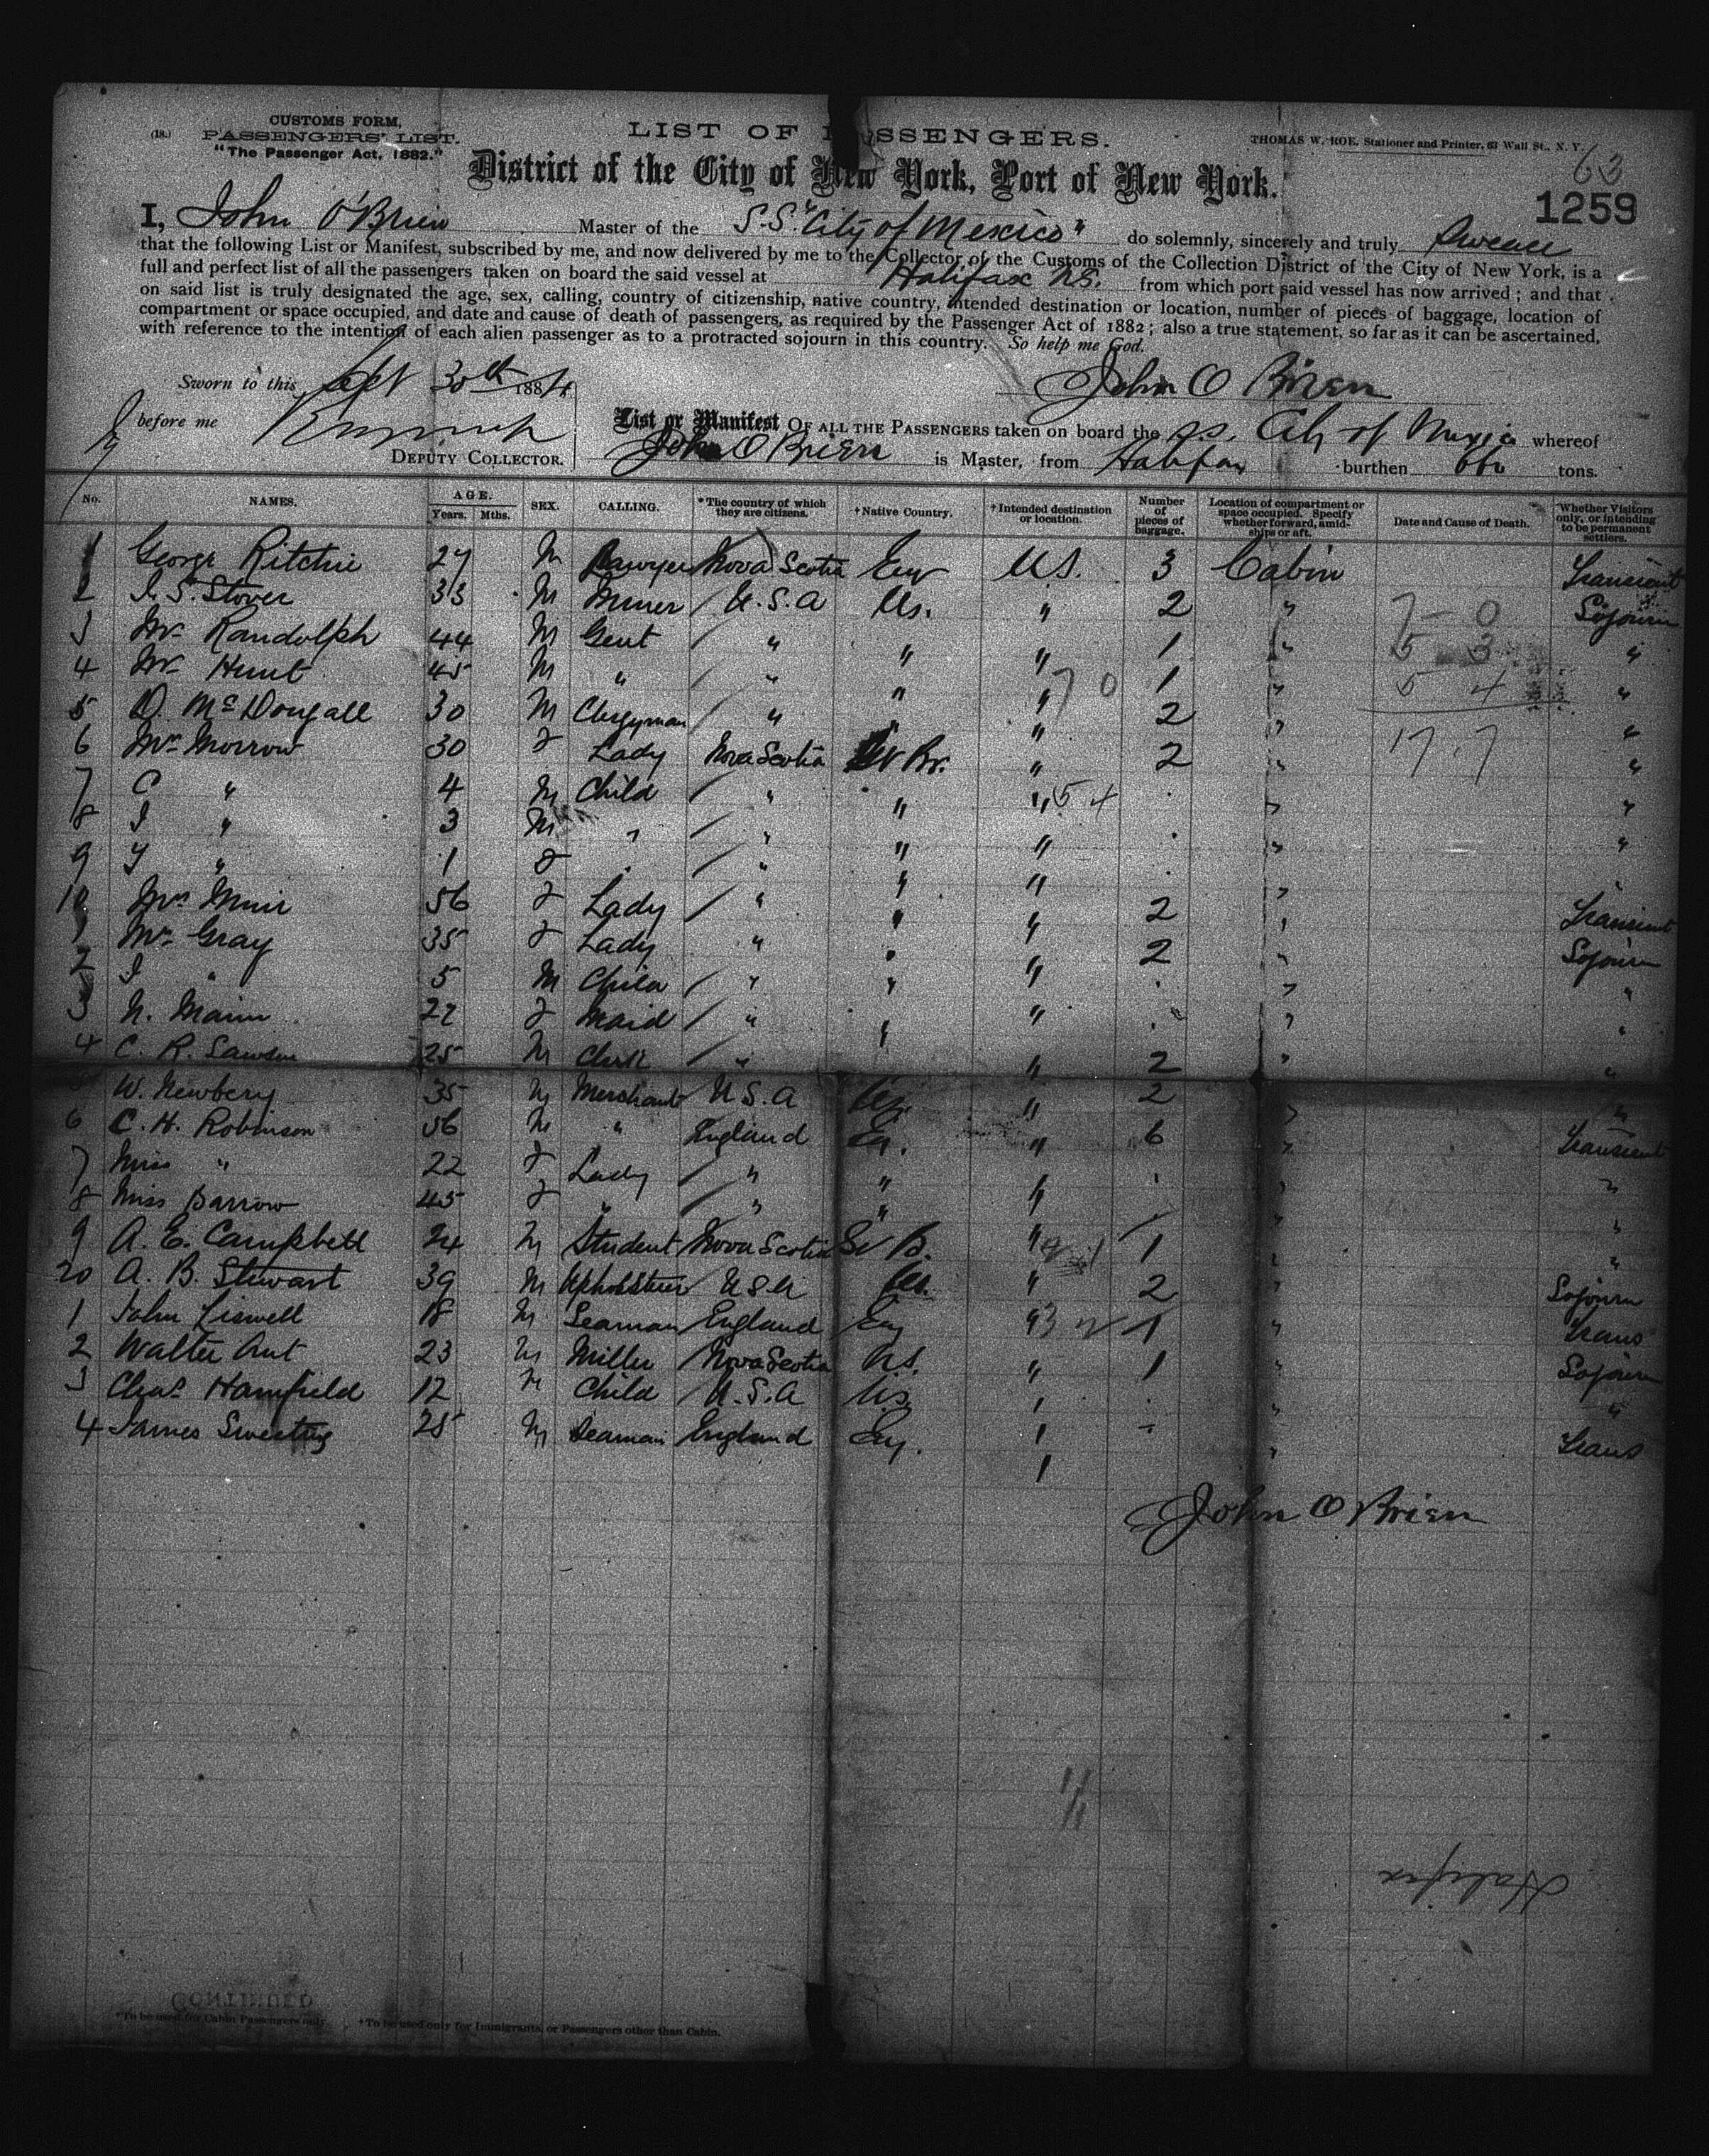 (18.)
CUSTOMS FORM,
PASSENGERS' LIST.
"The Passenger Act, 1882."
LIST OF PASSENGERS.
THOMAS W. ROE, Stationer and Printer, 63 Wall St., N. Y.
District of the City of New York, Port of New York.
63
1259
I, John O'Brien Master of the S.S. "City of Mexico" do solemnly, sincerely and truly swear
that the following List or Manifest, subscribed by me, and now delivered by me to the Collector of the Customs of the Collection District of the City of New York, is a
full and perfect list of all the passengers taken on board the said vessel at Halifax NS. from which port said vessel has now arrived; and that
on said list is truly designated the age, sex, calling, country of citizenship, native country, intended destination or location, number of pieces of baggage, location of
compartment or space occupied, and date and cause of death of passengers, as required by the Passenger Act of 1882; also a true statement, so far as it can be ascertained,
with reference to the intention of each alien passenger as to a protracted sojourn in this country. So help me God.
Sworn to this Sept 30th 1884 John O Brien
before me
DEPUTY COLLECTOR.
List or Manifest OF ALL THE PASSENGERS taken on board the ss. City of Mexico whereof
John O Brien is Master, from Halifax burthen tons.
No. NAMES. AGE. Years. Mths. SEX. CALLING. *The country of which they are citizens. †Native Country. †Intended destination or location. Number of pieces of baggage. Location of compartment or space occupied. Specify whether forward, amidships or aft. Date and Cause of Death. Whether Visitors only, or intending to be permanent settlers.
1 George Ritchie 27 M Lawyer Nova Scotia US. 3 Cabin Transient
2 I. S. Stover 33 M Miner U.S.A Us. " 2 " Sojourn
3 Mr Randolph 44 M Gent " " " 1 " "
4 Mr Hunt 45 M " " " " 1 " "
5 D. McDougall 30 M Clergyman " " " 2 " "
6 Mrs Morrow 30 F Lady Nova Scotia " 2 " "
7 C " 4 M Child " " " " "
8 I " 3 M " " " " " "
9 " 1 F " " " "
10 Mrs Muir 56 F Lady " " " 2 " Transient
1 Mrs Gray 35 F Lady " " " 2 " Sojourn
2 I " 5 M Child " " " " "
3 N. Mann 22 F Maid " " " " "
4 C. R. 25 M Clerk " " 2 " "
5 W. Newbery 35 M Merchant U S.A Us. " 2 " "
6 C. H. Robinson 56 M " England " 6 " Transient
7 Miss " 22 F Lady " " " " "
8 Miss Barrow 45 F " " " " " "
9 A. E. Campbell 24 M Student Nova Scotia " 1 " "
20 A. B. Stewart 39 M Upholsterer U S A Us. " 2 " Sojourn
1 John 18 M Seaman England Eng " 1 " Trans
2 Walter 23 M Miller Nova Scotia N.S. " 1 " Sojourn
3 Chas Hamfield 12 M Child U.S.A Us. " "
4 James Sweeting 25 M Seaman England Eng. " Trans
John O Brien
Halifax
CONTINUED
*To be used for Cabin Passengers only. †To be used only for Immigrants, or Passengers other than Cabin.